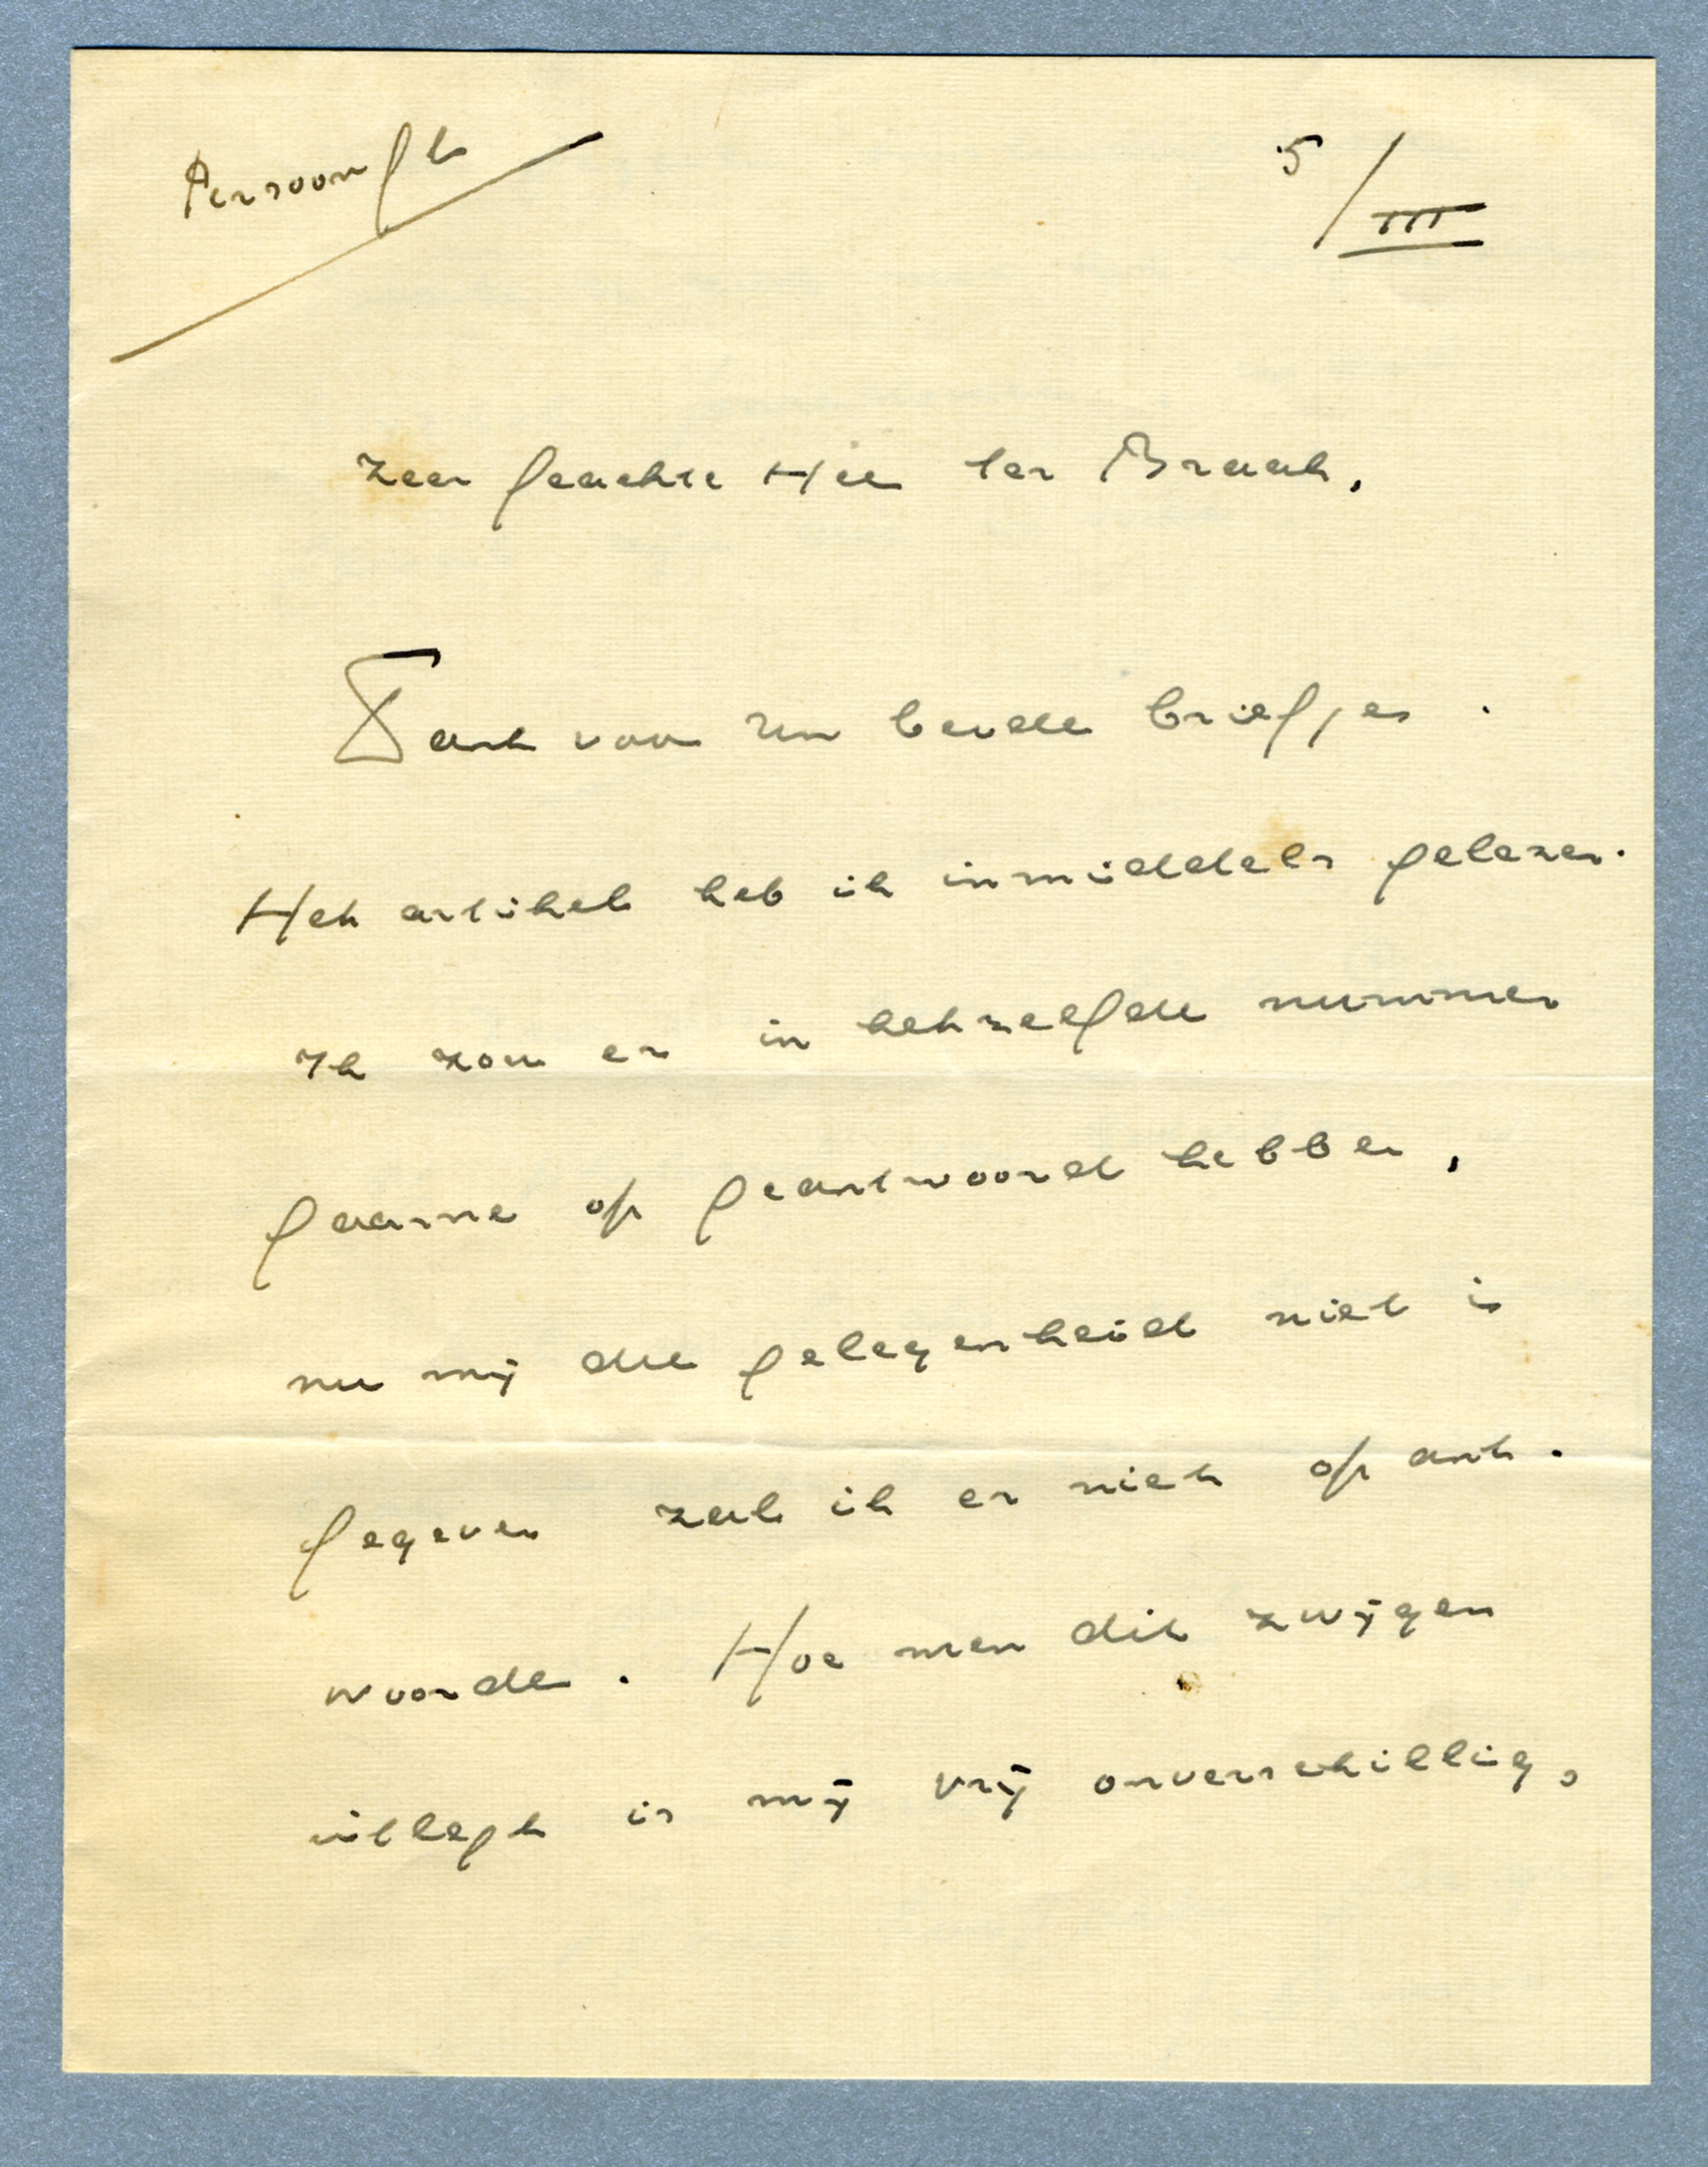 Persoonlk
5/III
Zeer geachte Heer ter Braak,
Dank voor Uw beide briefjes.
Het artikel heb ik inmiddels gelezen.
Ik zou er in hetzelfde nummer
gaarne op geantwoord hebben,
nu mij die gelegenheid niet is
gegeven zal ik er niet op ant-
woorden. Hoe men dit zwijgen
uitlegt is mij vrij onverschillig,